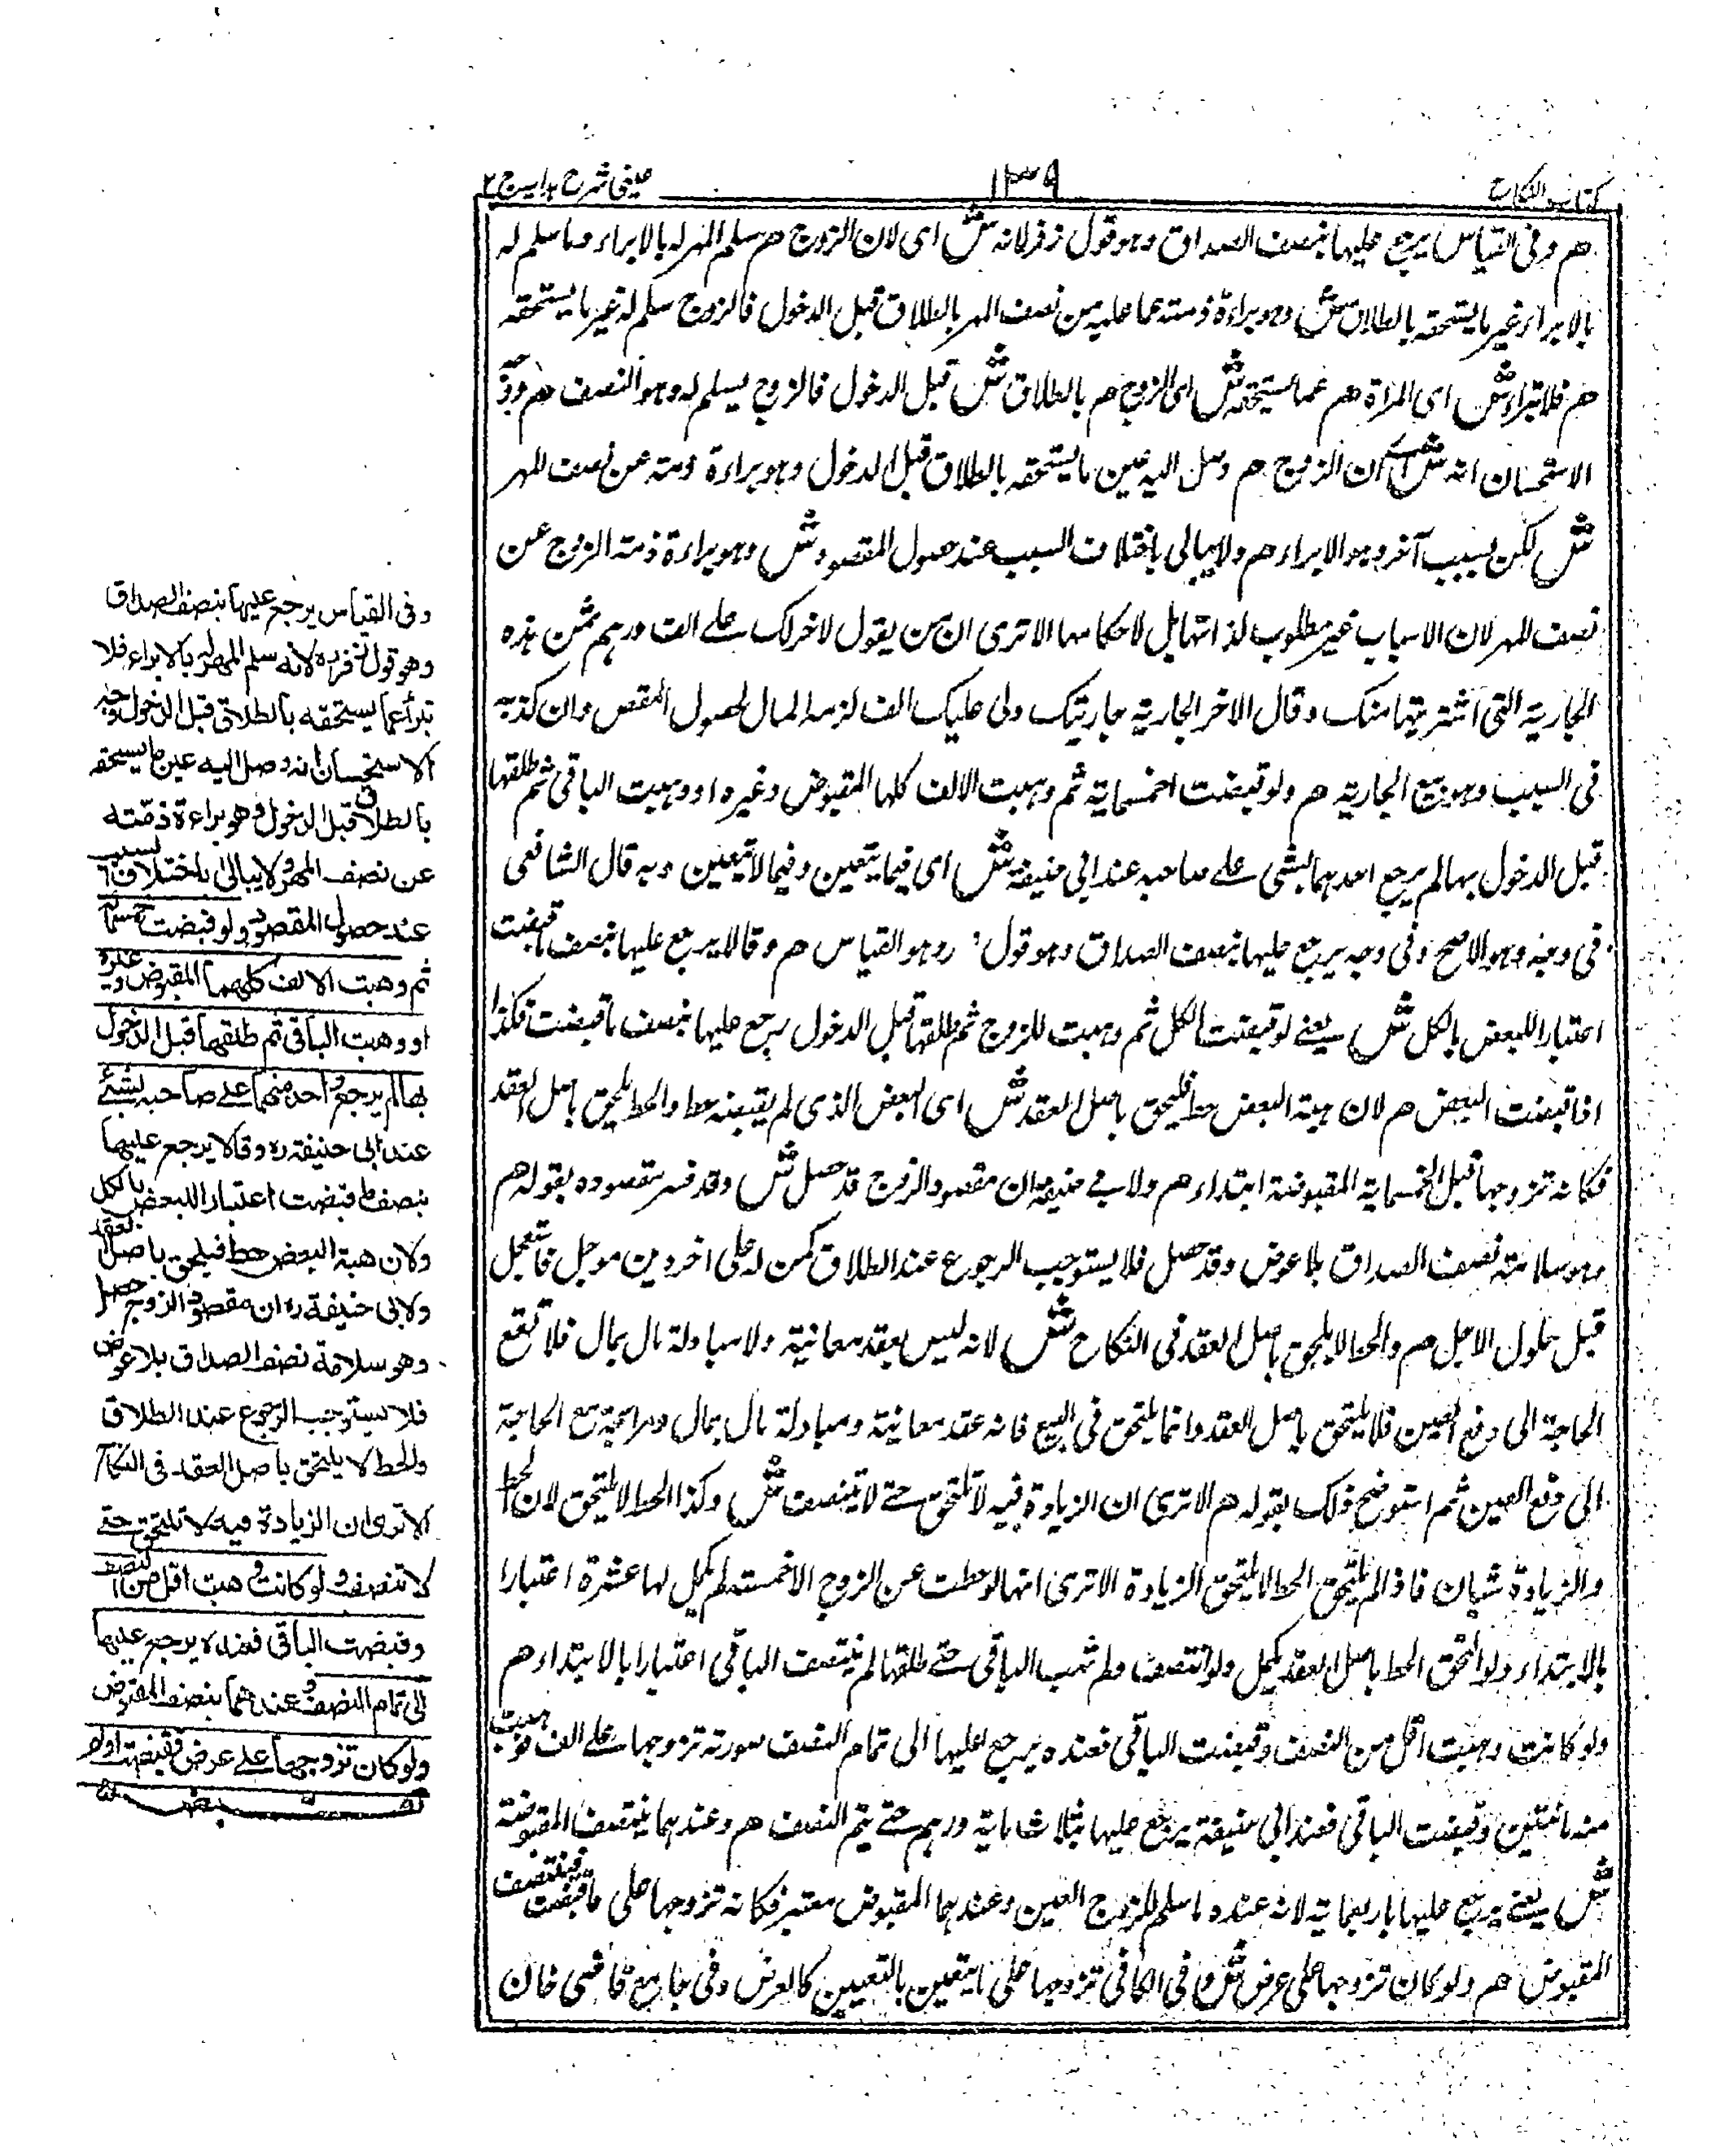 كتاب النكاح
١٣٩
عينى شرح هدايه ج ٢
هم وفى القياس يرجع عليها بنصف الصداق وهو قول زفر لانه ش اى لان الزوج هم سلم المهر له بالابراء وما سلم له
بالابراء غير ما يستحقه بالطلاق ش وهو براءة ذمته عما عليه من نصف المهر بالطلاق قبل الدخول فالزوج سلم له غير ما يستحقه
هم فلا تبراء ش اى المراة هم عما يستحقه ش اى الزوج هم بالطلاق ش قبل الدخول فالزوج يسلم له وهو النصف هم وجه
الاستحسان انه ش اى ان الزوج هم وصل اليه عين ما يستحقه بالطلاق قبل الدخول وهو براءة ذمته عن نصف المهر
ش لكن بسبب آخر وهو الابراء هم ولا يبالى باختلاف السبب عند حصول المقصود ش وهو براءة ذمة الزوج عن
نصف المهر لان الاسباب غير مطلوب لذاتها بل لاحكامها الا ترى ان من يقول لاخر لك على الف درهم ثمن هذه
الجارية التى اشتريتها منك وقال الاخر الجارية جاريتك ولى عليك الف لزمه المال لحصول المقص وان كذبه
فى السبب وهو بيع الجارية هم ولو قبضت خمسماية ثم وهبت الالف كلها المقبوض وغيره او وهبت الباقى ثم طلقها
قبل الدخول بها لم يرجع احدهما بشى على صاحبه عند ابى حنيفة ش اى فيما يتعين وفيما لا يتعين وبه قال الشافعى
فى وجه وهو الاصح وفى وجه يرجع عليها بنصف الصداق وهو قول وهو القياس هم وقالا يرجع عليها بنصف ما قبضت
اعتبارا للبعض بالكل ش يعنے لو قبضت الكل ثم وهبت للزوج ثم طلقها قبل الدخول يرجع عليها بنصف ما قبضت فكذا
اذا قبضت البعض هم لان هبة البعض حط فيلتحق باصل العقد ش اى البعض الذى لم يقبضه حط والحط يلتحق باصل العقد
فكانه تزوجها قبل الخمسماية المقبوضة ابتداء هم ولابے حنيفة ان مقصود الزوج قد حصل ش وقد فسر مقصوده بقوله هم
وهو سلامة نصف الصداق بلا عوض وقد حصل فلا يستوجب الرجوع عند الطلاق كمن له على اخر دين موجل فاستعجل
قبل حلول الاجل هم والحط لا يلتحق باصل العقد فى النكاح ش لانه ليس بعقد معاينة ولا مبادلة مال بمال فلا تقع
الحاجة الى دفع الغبن فلا يلتحق باصل العقد وانما يلتحق فى البيع فانه عقد معاينة ومبادلة مال بمال ومرابحة مع الحاجة
الى دفع الغبن ثم استوضح ذلك بقوله هم الا ترى ان الزيادة فيه لا تلتحق حتے لا تتنصف ش وكذا الحط لا يلتحق لان الحط
والزيادة شيان فاذا لم يلتحق الحط لا يلتحق الزيادة الا ترى انها لو حطت عن الزوج الا خمسة لم يكمل لها عشرة اعتبارا
بالابتداء ولو التحق الحط باصل العقد يكمل ولو انتصف ولم تهب الباقى حتے طلقها لم ينتصف الباقى اعتبارا بالابتداء هم
ولو كانت وهبت اقل من النصف وقبضت الباقى فعنده يرجع عليها الى تمام النصف صورته تزوجها على الف فوهبت
منه مائتين وقبضت الباقى فعند ابى حنيفة يرجع عليها بثلاثماية درهم حتے يتم النصف هم وعندهما ينتصف المقبوضة
ش يعنے يرجع عليها باربعماية لانه عنده ما سلم للزوج العين وعندهما المقبوض معتبر فكانه تزوجها على ما قبضت فينتصف
المقبوض هم ولو كان تزوجها على عرض ش وفى الكافى تزوجها على ما يتعين بالتعيين كالعرض وفى جامع قاضى خان
وفى القياس يرجع عليها بنصف الصداق
وهو قول زفر ره لانه سلم المهر له بالابراء فلا
تبرأ عما يستحقه بالطلاق قبل الدخول وجه
الاستحسان انه وصل اليه عين ما يستحقه
بالطلاق قبل الدخول وهو براءة ذمته
عن نصف المهر ولا يبالى باختلاف السبب
عند حصول المقصود ولو قبضت خمسمائة
ثم وهبت الالف كلها المقبوض وغيره
او وهبت الباقى ثم طلقها قبل الدخول
بها لم يرجع واحد منهما على صاحبه بشئ
عند ابى حنيفة ره وقالا يرجع عليها
بنصف ما قبضت اعتبارا للبعض بالكل
ولان هبة البعض حط فيلتحق باصل العقد
ولابى حنيفة ره ان مقصود الزوج حصل
وهو سلامة نصف الصداق بلا عوض
فلا يستوجب الرجوع عند الطلاق
والحط لا يلتحق باصل العقد فى النكاح
الا ترى ان الزيادة فيه لا تلتحق حتے
لا تتنصف ولو كانت وهبت اقل من النصف
وقبضت الباقى فعنده يرجع عليها
الى تمام النصف وعندهما بنصف المقبوض
ولو كان تزوجها على عرض فقبضته اولم
تقبض